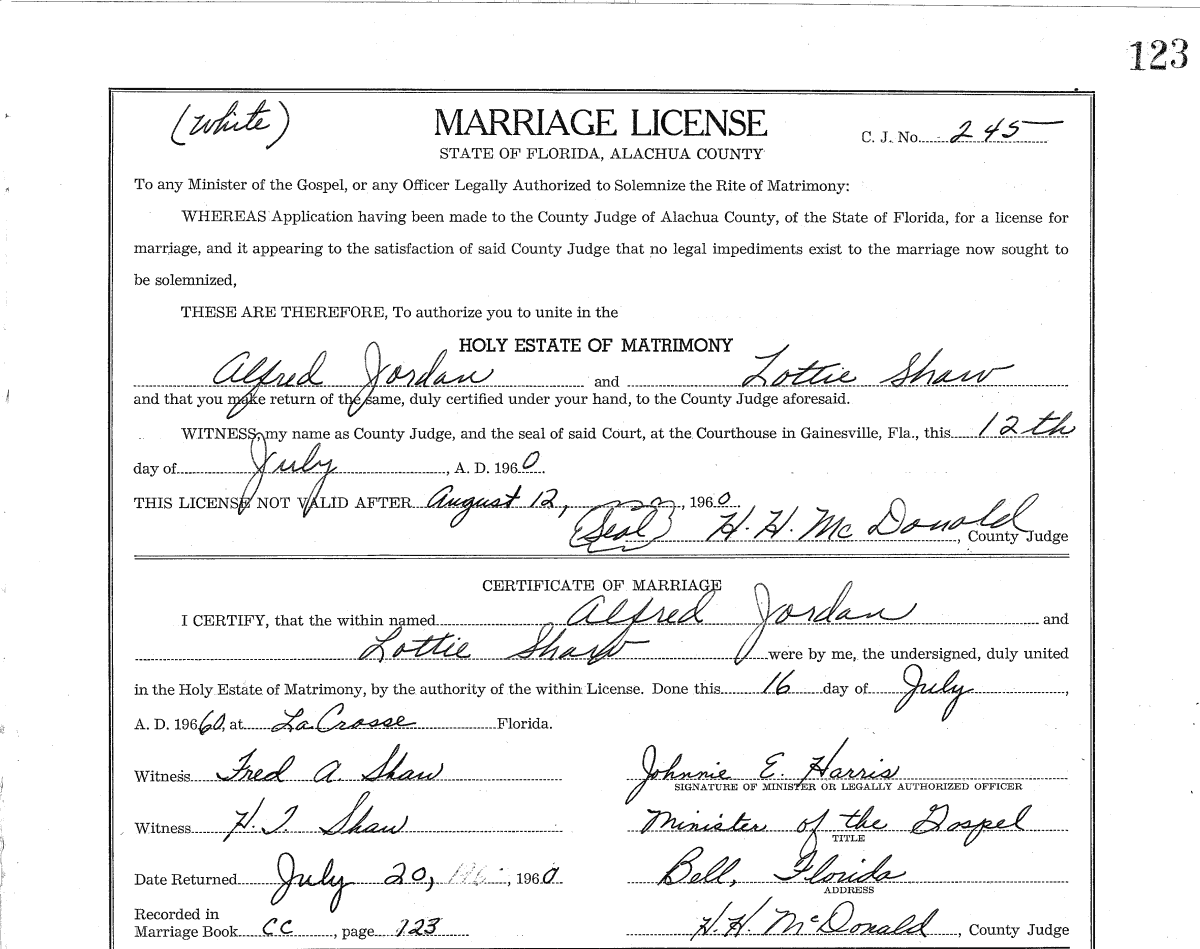 123
(White)
MARRIAGE LICENSE
C. J. No. 245
STATE OF FLORIDA, ALACHUA COUNTY
To any Minister of the Gospel, or any Officer Legally Authorized to Solemnize the Rite of Matrimony:
WHEREAS Application having been made to the County Judge of Alachua County, of the State of Florida, for a license for
marriage, and it appearing to the satisfaction of said County Judge that no legal impediments exist to the marriage now sought to
be solemnized,
THESE ARE THEREFORE, To authorize you to unite in the
HOLY ESTATE OF MATRIMONY
Alfred Jordan and Lottie Shaw
and that you make return of the same, duly certified under your hand, to the County Judge aforesaid.
WITNESS, my name as County Judge, and the seal of said Court, at the Courthouse in Gainesville, Fla., this 12th
day of July, A. D. 1960.
THIS LICENSE NOT VALID AFTER August 12, , 1960.
(Seal) H. H. McDonald, County Judge
CERTIFICATE OF MARRIAGE
I CERTIFY, that the within named Alfred Jordan and
Lottie Shaw were by me, the undersigned, duly united
in the Holy Estate of Matrimony, by the authority of the within License. Done this 16 day of July,
A. D. 19660, at LaCrosse Florida.
Witness Fred A. Shaw
Johnnie E. Harris
SIGNATURE OF MINISTER OR LEGALLY AUTHORIZED OFFICER
Witness H. T. Shaw
Minister of the Gospel
TITLE
Date Returned July 20, , 1960
Bell, Florida
ADDRESS
Recorded in
Marriage Book CC, page 123
H. H. McDonald, County Judge